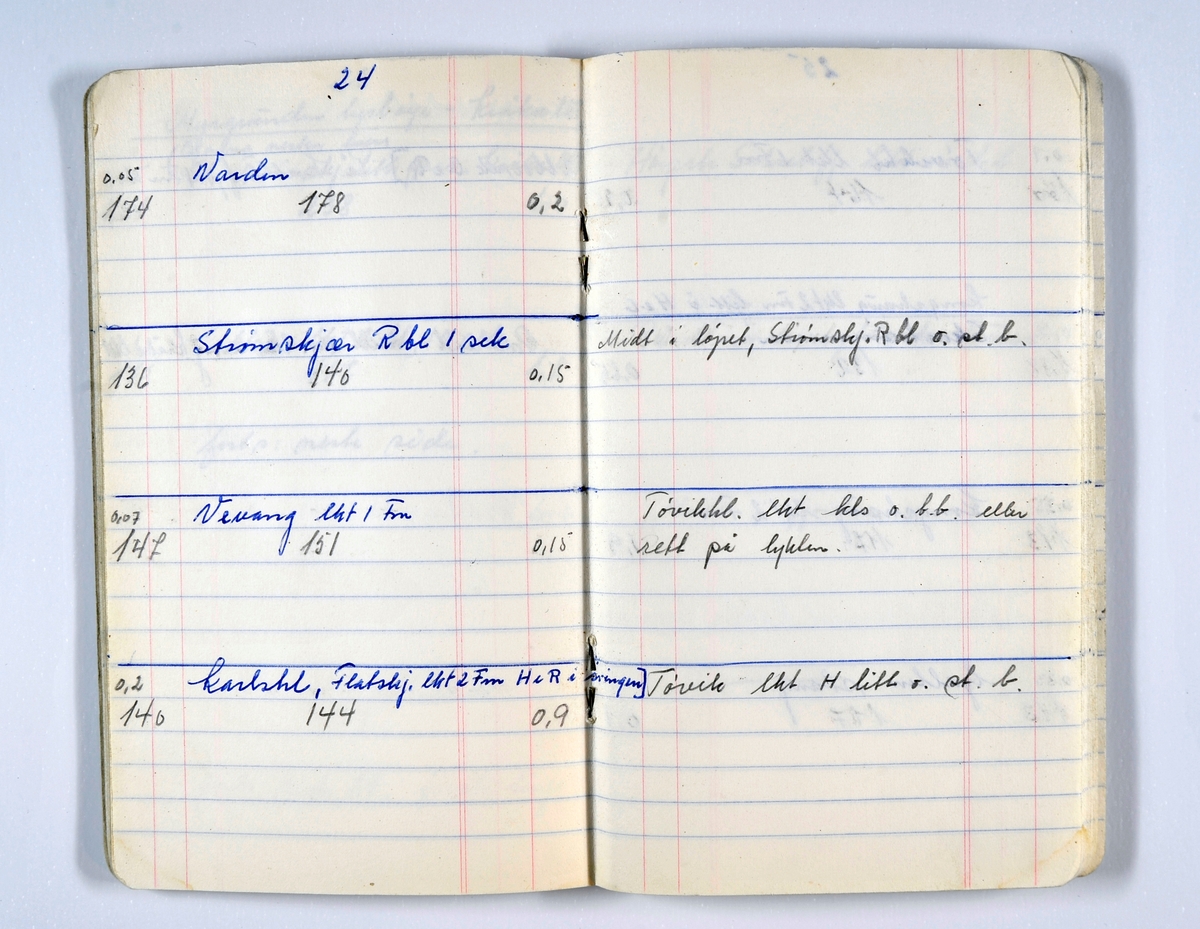 24
0,05 Varden
174 178 0,2
Strømskjær R bl 1 sek
136 140 0,15
Midt i løpet, Strømskj. R bl o. st. b.
0,07 Vevang lkt 1 Fm
147 151 0,15
Tøvikhl. lkt kls o. b.b. eller
rett på lykten.
0,2 Karlshl, Flatskj. lkt 2 Fm H e R i svingen]
140 144 0,9
Tøvik lkt H litt o. st. b.